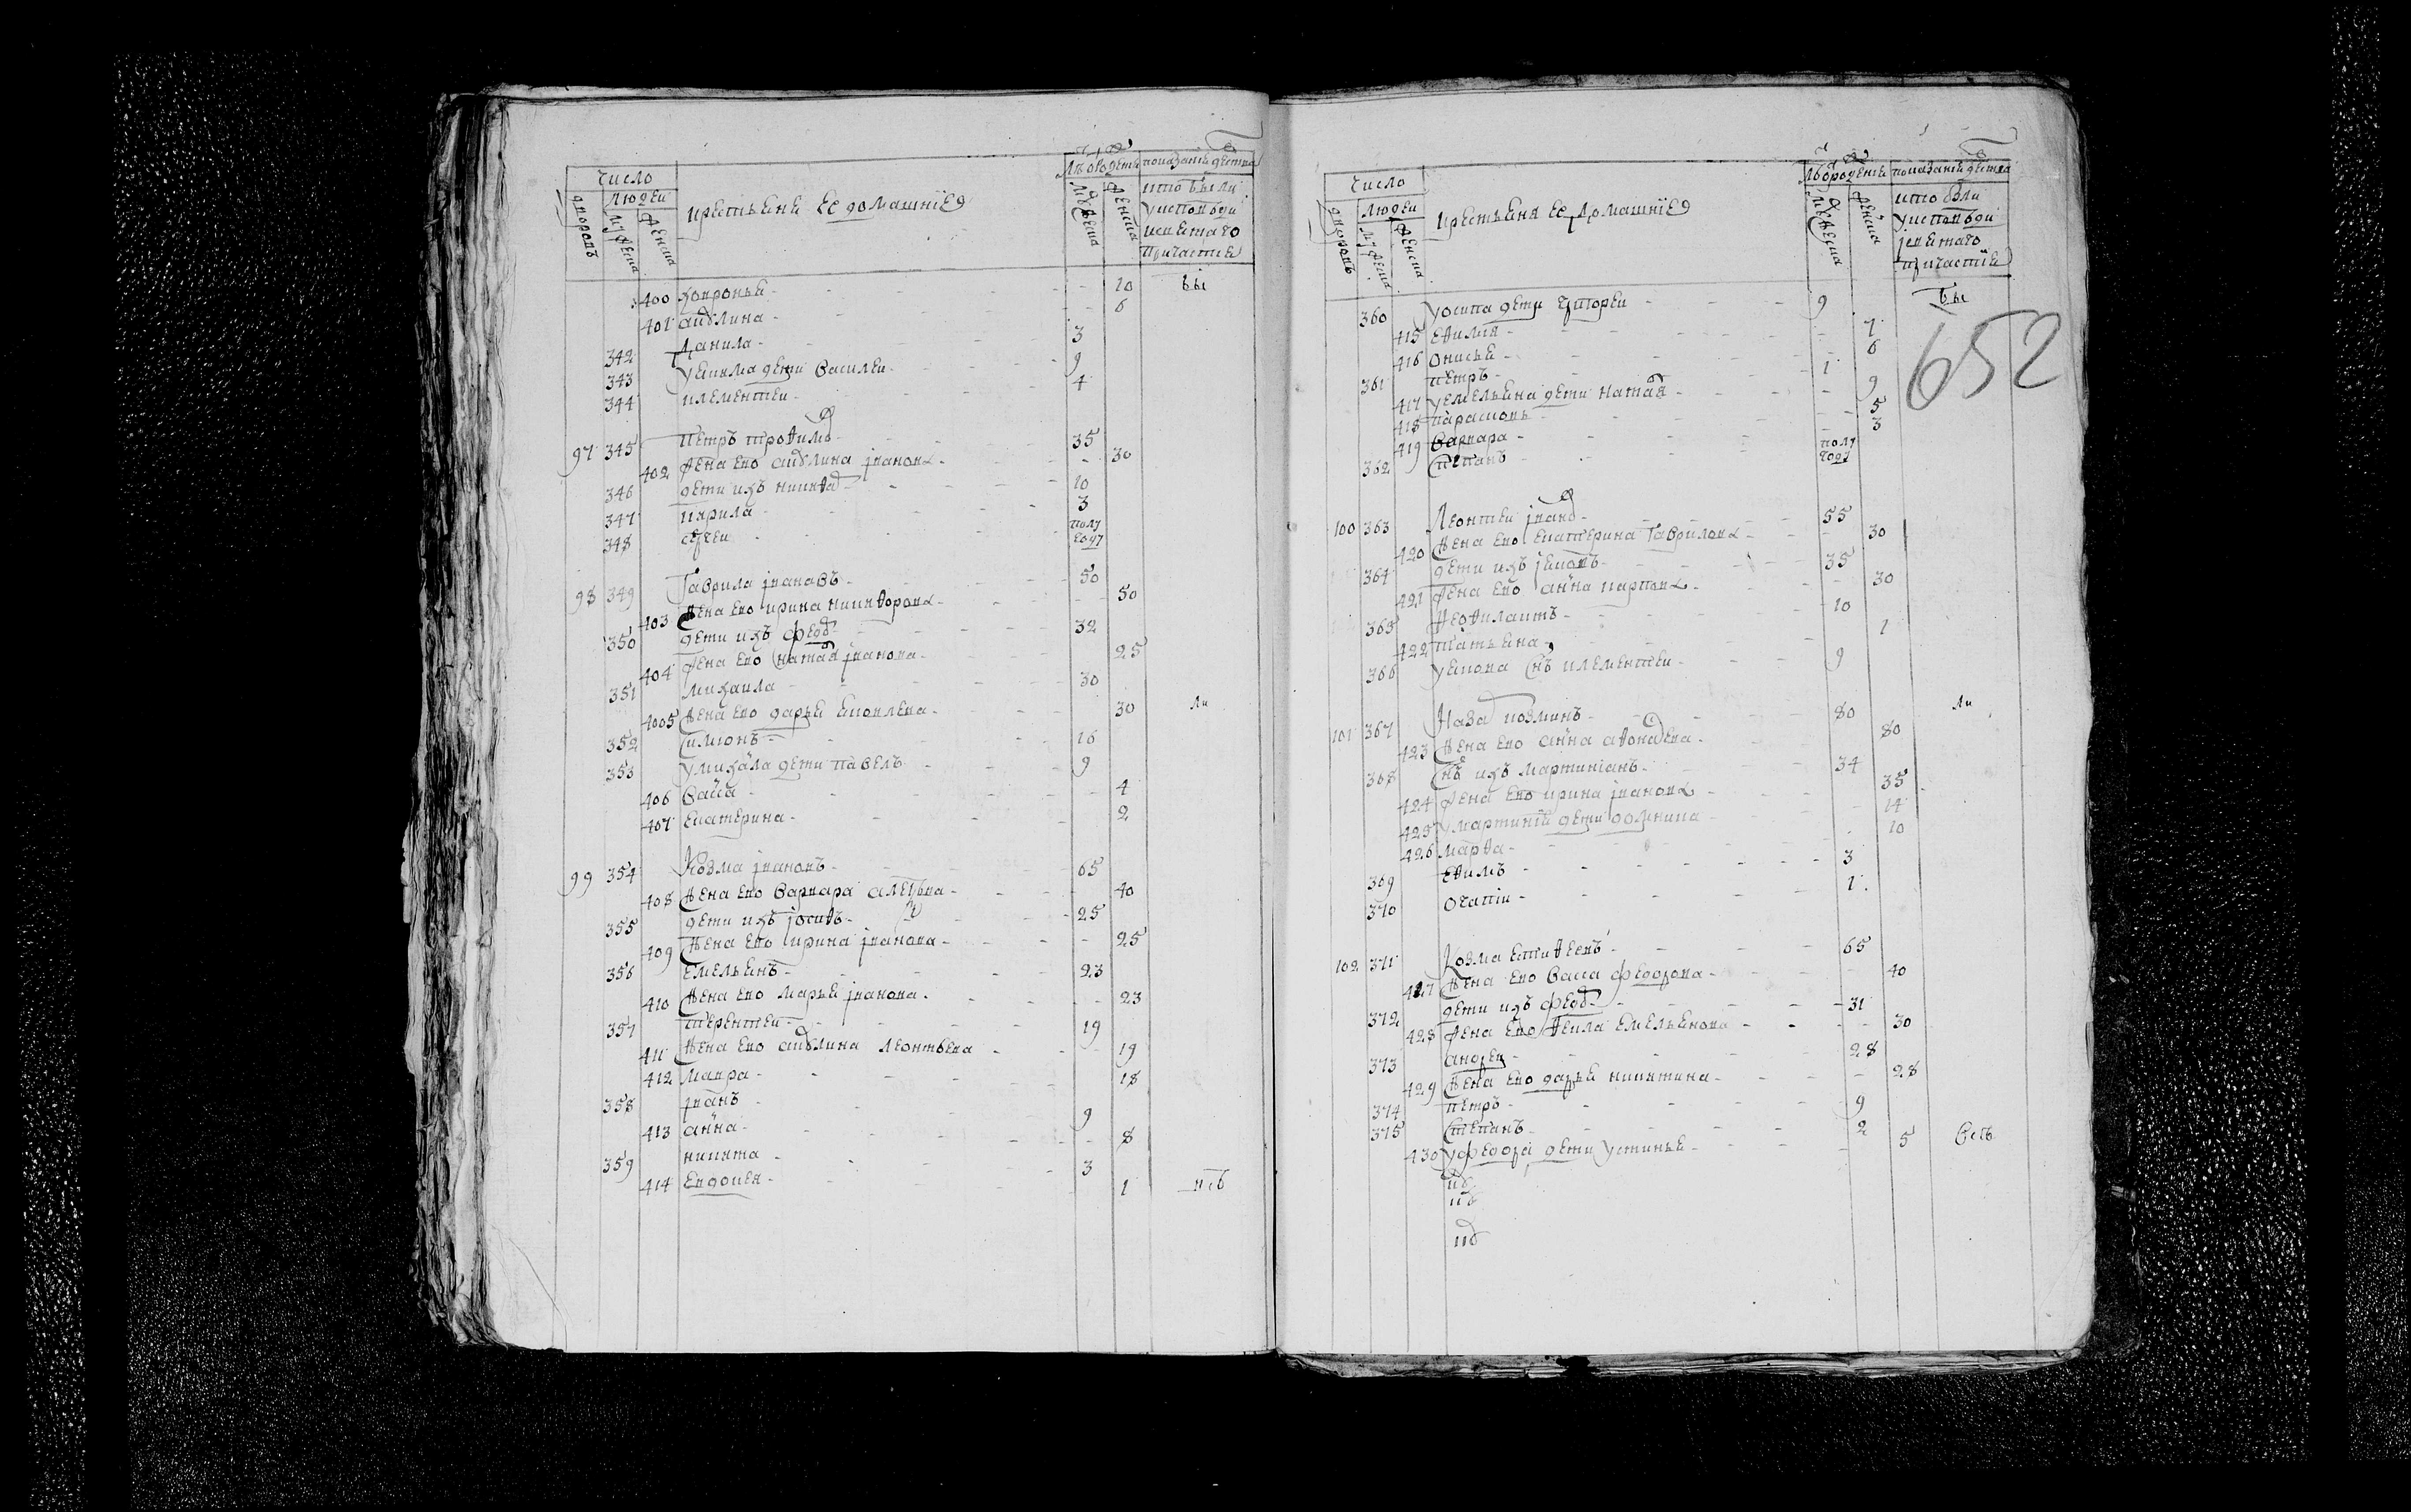 Число
Лѣ от рожденїѧ показанїе действа
людеи
дворовъ
мужеска
женска
крестьяне ее домашнїе
мужеска
женска
кто были
у исповеди
и святаго
причастия
400 ховронья - 10 бы
401 акулина - 6
342 Данила - 3
343 у екима дети Василеи - 9
344 клементеи - 4
97 345 Петръ трофимов - 35
402 жена ево акулина иванова - 30
346 дети ихъ никифор - 10
347 кирила - 3
348 сергеи - полугоду
98 349 Гаврила ивановъ - 50
403 жена ево ирина никифорова - 50
350 дети ихъ федор - 32
404 жена ево наталя иванова - 25
351 михаила - 30
4005 жена ево дарья яковлева - 30 ли
352 симионъ - 16
353 у михаила дети павелъ - 9
406 васса - 4
407 екатерина - 2
99 354 Козма ивановъ - 65
408 жена ево варвара алексѣева - 40
355 дети ихъ иосифъ - 25
409 жена ево ирина иванова - 25
356 емельянъ - 23
410 жена ево марья иванова - 23
357 терентеи - 19
411 жена ево акулина леонтьева - 19
412 мавра - 18
358 иванъ - 9
413 анна - 8
359 никита - 3
414 евдокея - 1 всѣ
Число
Лѣ от рожденїѧ показанїе действа
людеи
дворовъ
мужеска
женска
крестьяня ее домашнїе
мужеска
женска
кто были
у исповеди
и святаго
причастия
652
360 у осипа дети григореи - 9 бы
415 ефимия - 7
416 онисья - 6
361 петръ - 1
417 у емельяна дети наталя - 9
418 парасковья - 5
419 варвара - 3
362 степанъ - полугоду
100 363 Леонтеи иванов - 55
420 жена ево екатерина гаврилова - 30
364 дети ихъ яковъ - 35
421 жена ево анна карпова - 30
365 феофилактъ - 10
422 татьяна - 1
366 у якова снъ клементеи - 9
101 367 Назар козминъ - 80 ли
423 жена ево анна афонасева - 80
368 снъ ихъ мартиніанъ - 34
424 жена ево ирина иванова - 35
425 у мартиния дети домника - 14
426 марфа - 10
369 ефимъ - 3
370 огапіи - 1
102 371 Козма естифеевъ - 65
427 жена ево васса федорова - 40
372 дети ихъ федор - 31
428 жена ево фекла емельянова - 30
373 андреи - 28
429 жена ево дарья никитина - 28
374 петръ - 9
375 степанъ - 2
430 у федора дети устинья - 5 всѣ